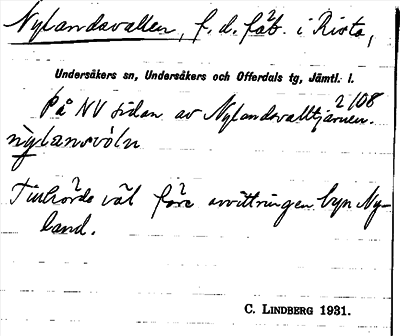 Nylandsvallen, f. d. fäb. i Rista,
Undersåkers sn, Undersåkers och Offerdals tg, Jämtl. l.
2/108
På NV sidan av Nylandsvalltjärnen.
nỳlansvóln
Tillhörde väl före avvittringen byn Ny-
land.
C. LINDBERG 1931.